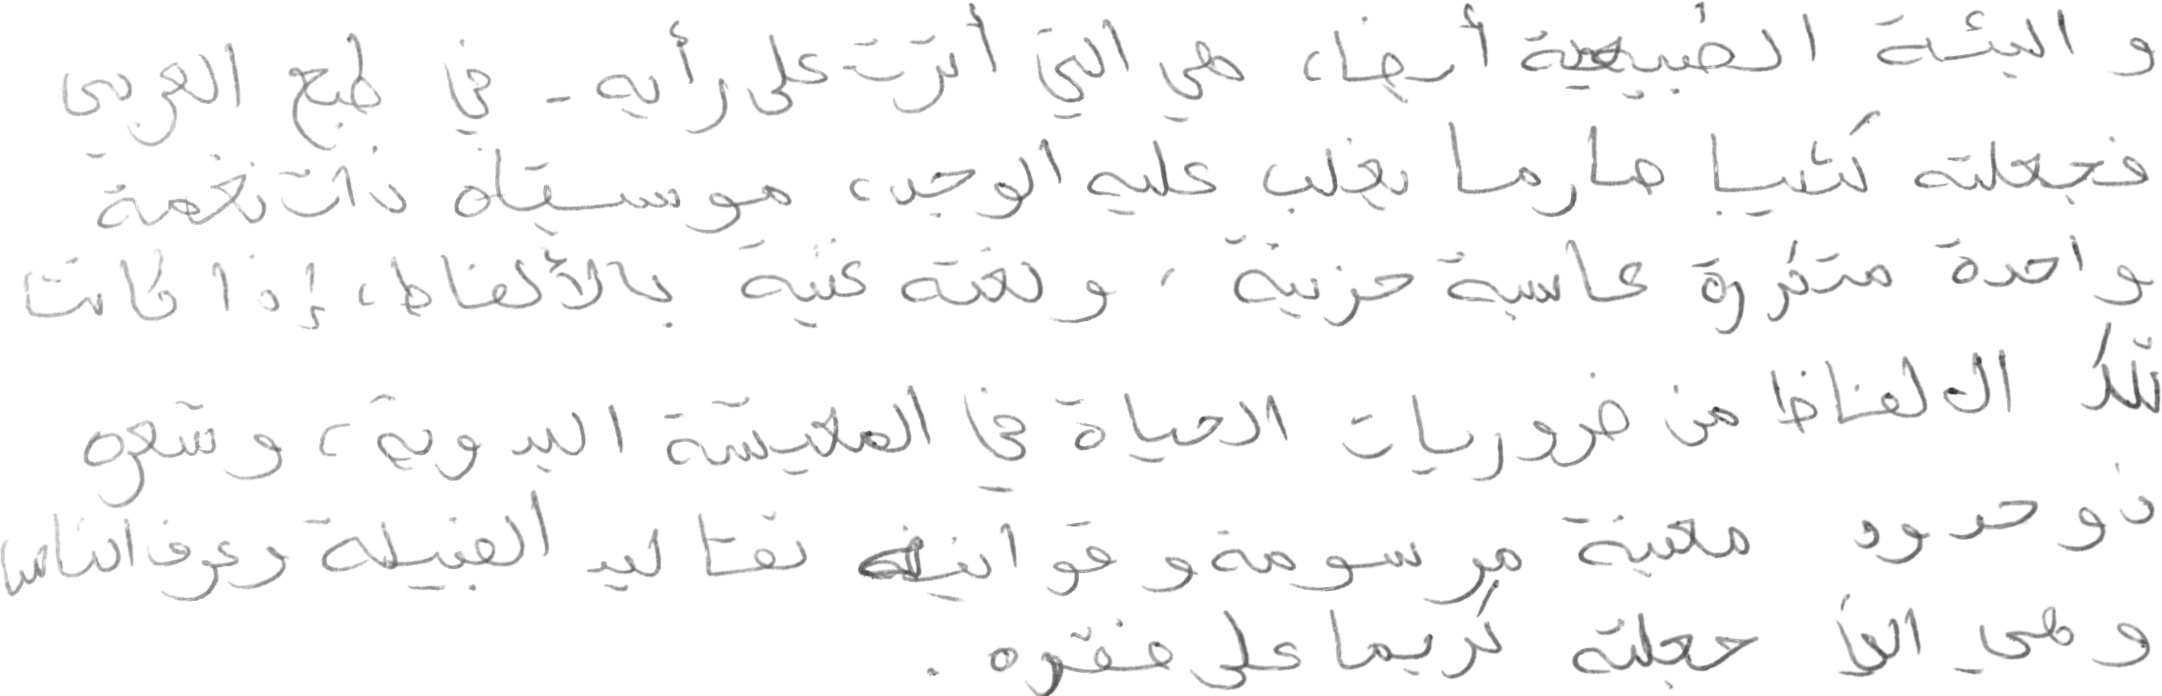 و البيئة الطبيعية أيضا، هي التي أثرت على رأيه - في طبع العربي
فجعلته كئيبا صارما يغلب عليه الوجد، موسيقاه ذات نغمة
واحدة متكررة عابسة حزينة، ولغته غنية بالألفاظ، إذا كانت
تلك الالفاظ من ضروريات الحياة في المعيشة البدوية، وشعره
ذو حدود معينة مرسومة وقوانينه تقاليد القبيلة وعرف الناس
وهي التي جعلته كريما على فقره .